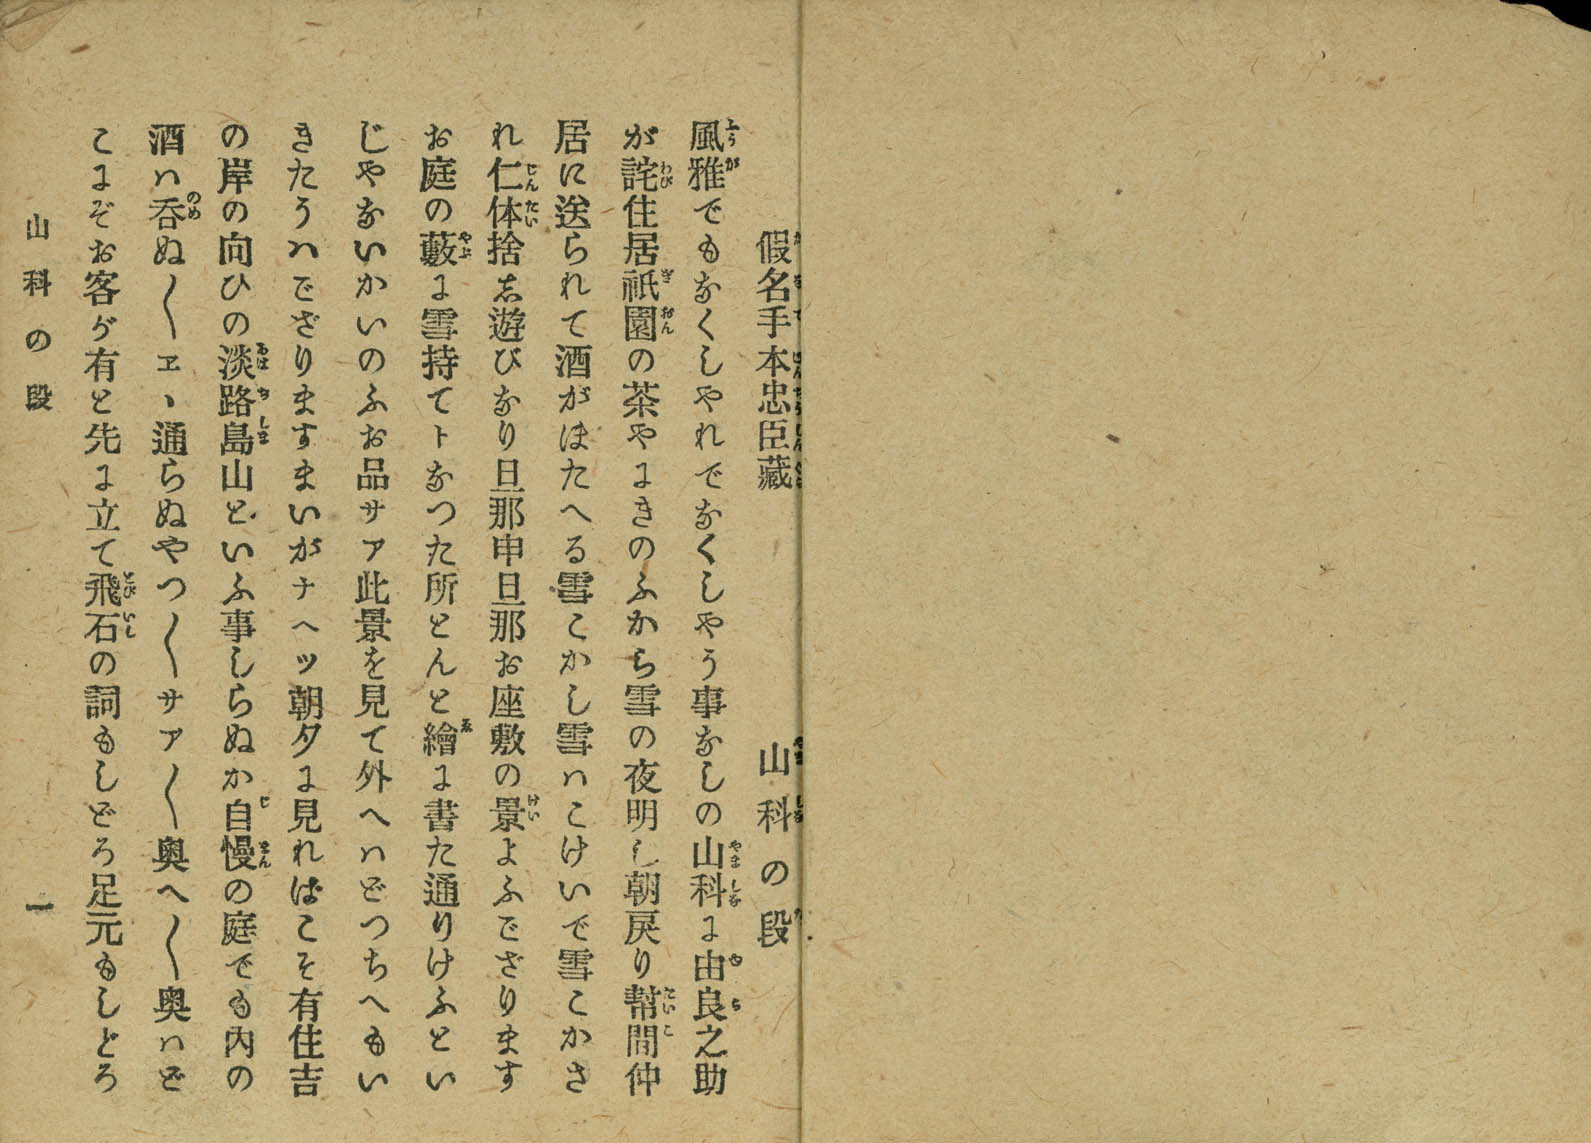 假名手本忠臣藏　山科の段
風雅でもなくしやれでなくしやう事なしの山科に由良之助
が詫住居祇園の茶やにきのふから雪の夜明し朝戻り幇間仲
居に送られて酒がほたへる雪こかし雪ハこけいで雪こかさ
れ仁体捨し遊びなり旦那申旦那お座敷の景よふござります
お庭の藪に雪持てトなつた所とんと繪に書た通りけふとい
じやないかいのふお品サア此景を見て外へハどつちへもい
きたうハござりますまいがナヘッ朝夕に見ればこそ有住吉
の岸の向ひの淡路島山といふ事しらぬか自慢の庭でも内の
酒ハ呑ぬ〱ヱヽ通らぬやつ〱サア〱奥へ〱奥ハど
こにぞお客が有と先に立て飛石の詞もしどろ足元もしどろ
山科の段　一